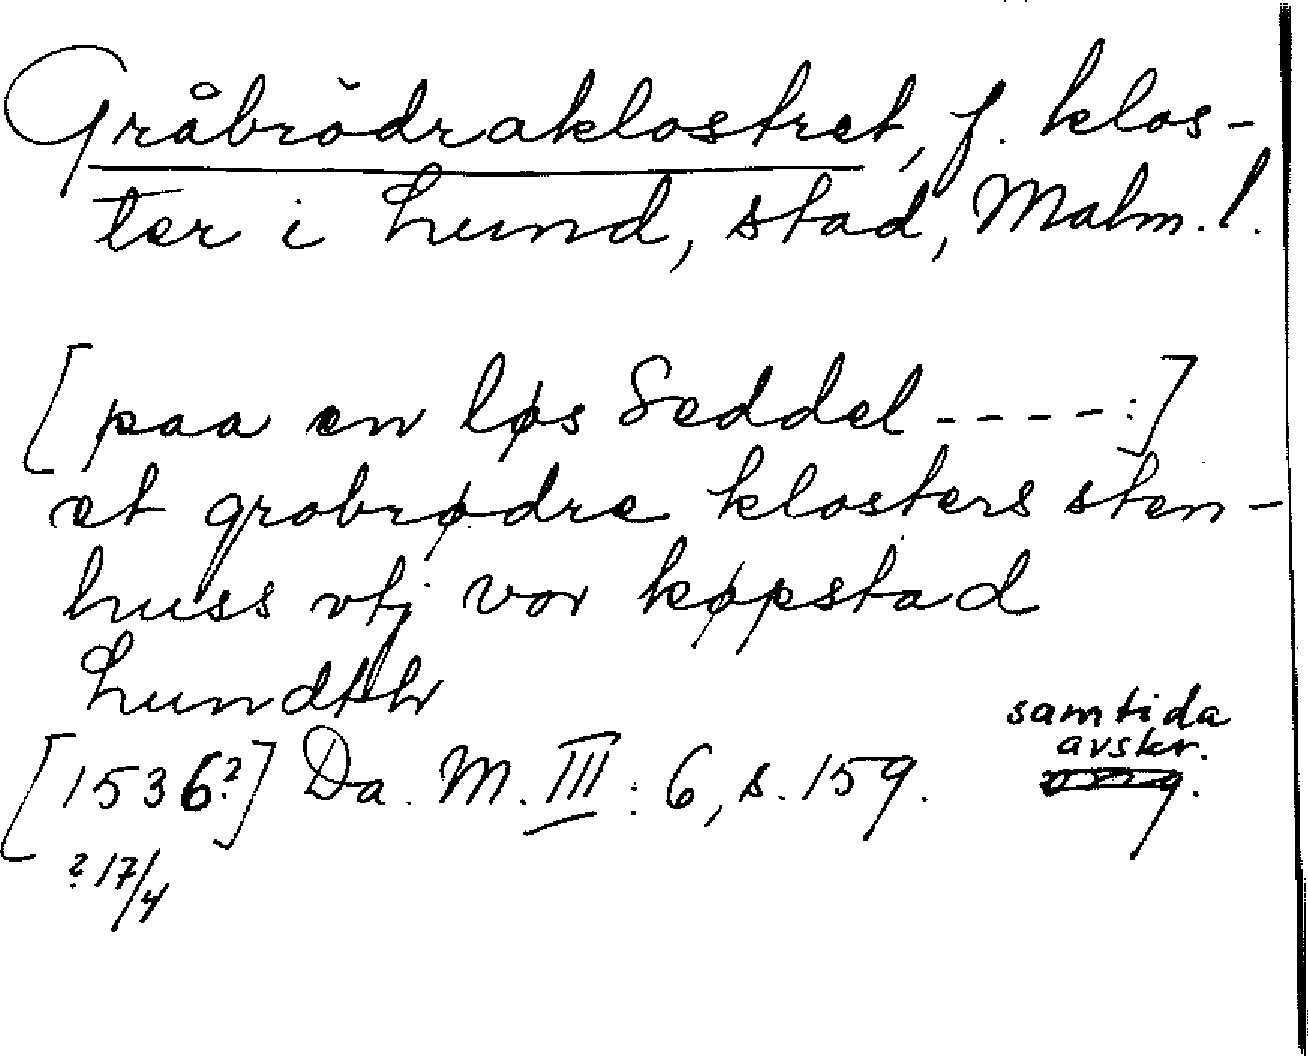 Gråbrödraklostret, f. klos-
ter i Lund, stad, Malm. l.
[paa en løs Seddel ----:]
et grobrødre klosters sten-
huss vtj vor køpstad
Lundthr
samtida
avskr.
[1536?] Da. M. III: 6, s. 159.
? 17/4